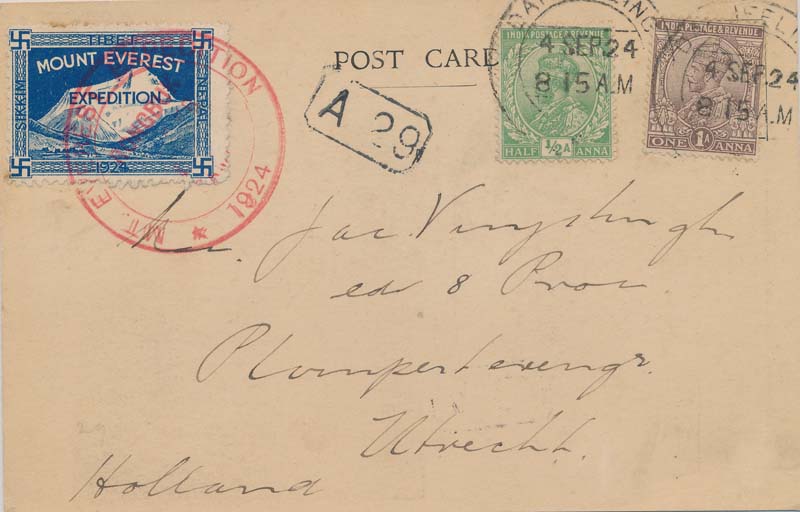 TIBET
MOUNT EVEREST
EXPEDITION
SIKKIM
NEPAL
1924
MT. EVEREST EXPEDITION
★ 1924
POST CARD
A 29
INDIA POSTAGE & REVENUE
HALF ½A ANNA
INDIA POSTAGE & REVENUE
ONE 1A ANNA
DARJEELING
4 SEP. 24
8 15 A.M
4 SEP. 24
8 15 A.M
Jac.
8
Utrecht.
Holland